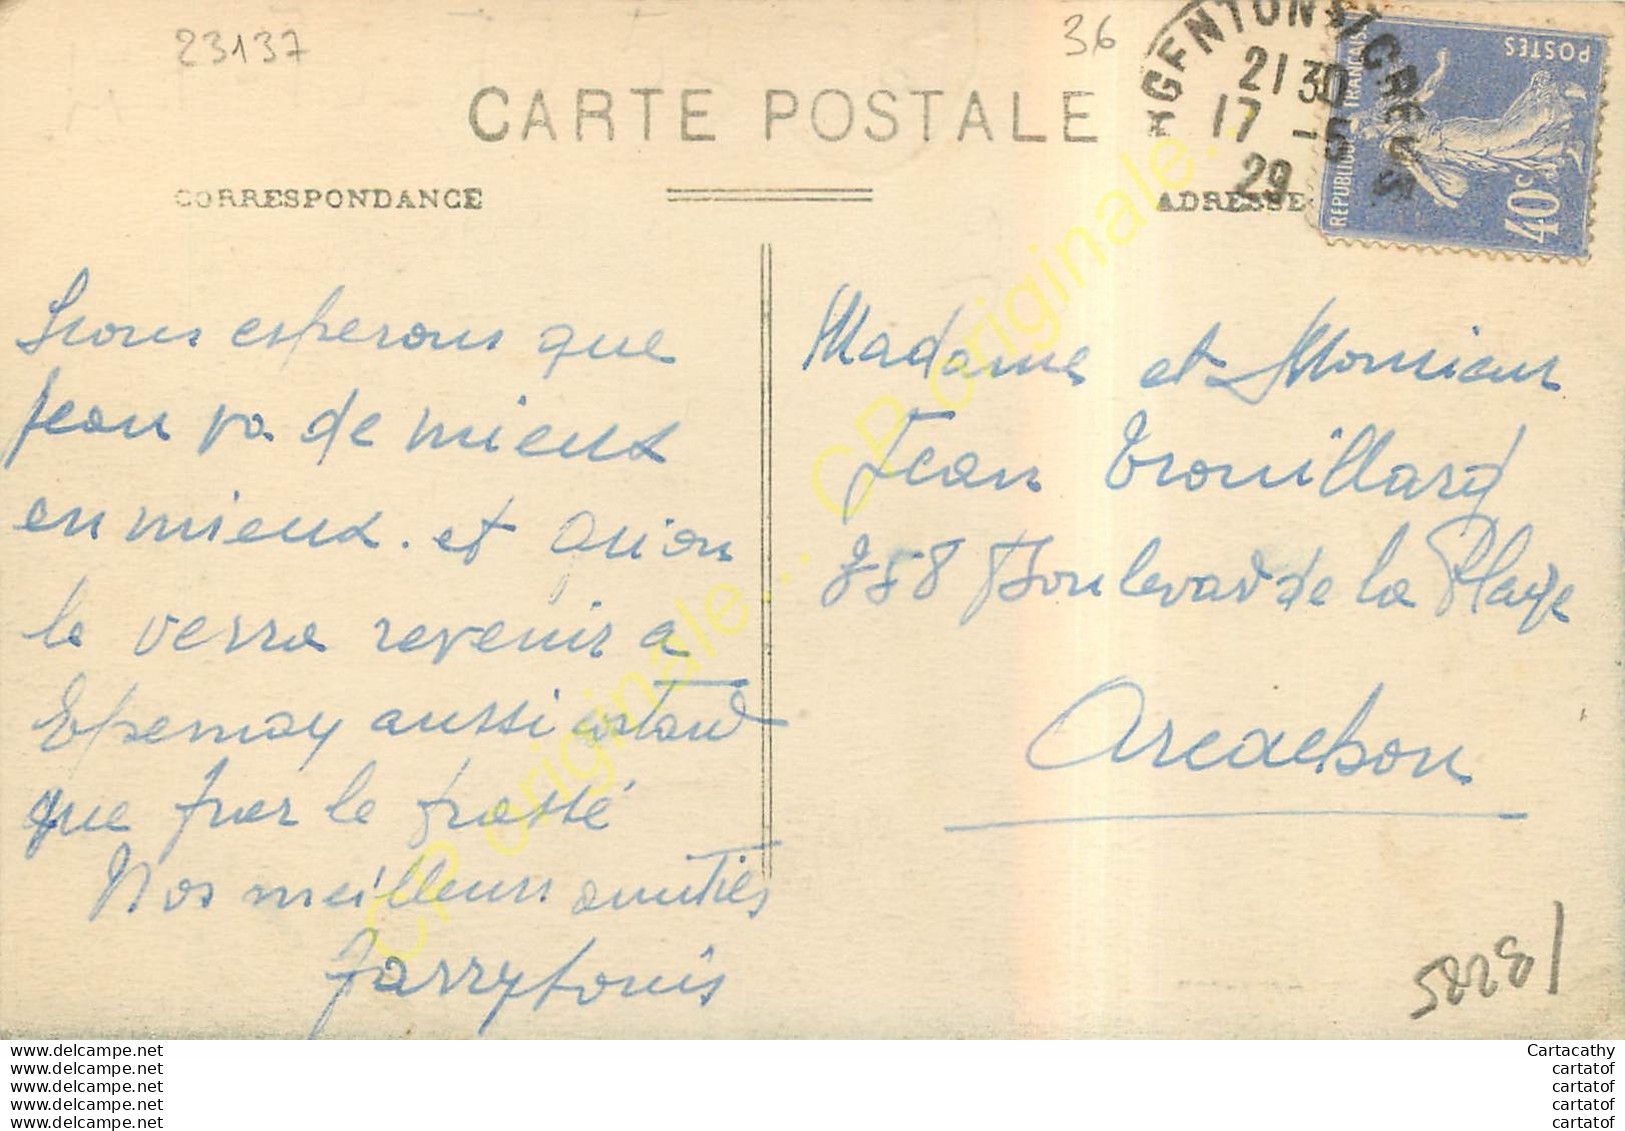 23137
36
CARTE POSTALE
CORRESPONDANCE
ADRESSE
RGENTON S/CREUSE
21 30
17 -5
29
POSTES
REPUBLIQUE FRANÇAISE
40c
Nous esperons que
Jean va de mieux
en mieux. et qu'on
le verra revenir a
Epernay aussi costaud
que par le passé
Nos meilleurs amitiés
Madame et Monsieur
Jean Trouillard
358 Boulevard de la Plage
Arcachon
CP originale... CP originale...
www.delcampe.net
www.delcampe.net
www.delcampe.net
www.delcampe.net
www.delcampe.net
Cartacathy
cartatof
cartatof
cartatof
cartatof